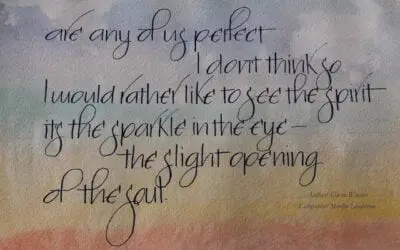 are any of us perfect
I dont think so
I would rather like to see the spirit
its the sparkle in the eye –
the slight opening
of the soul.
Author:
Calligrapher